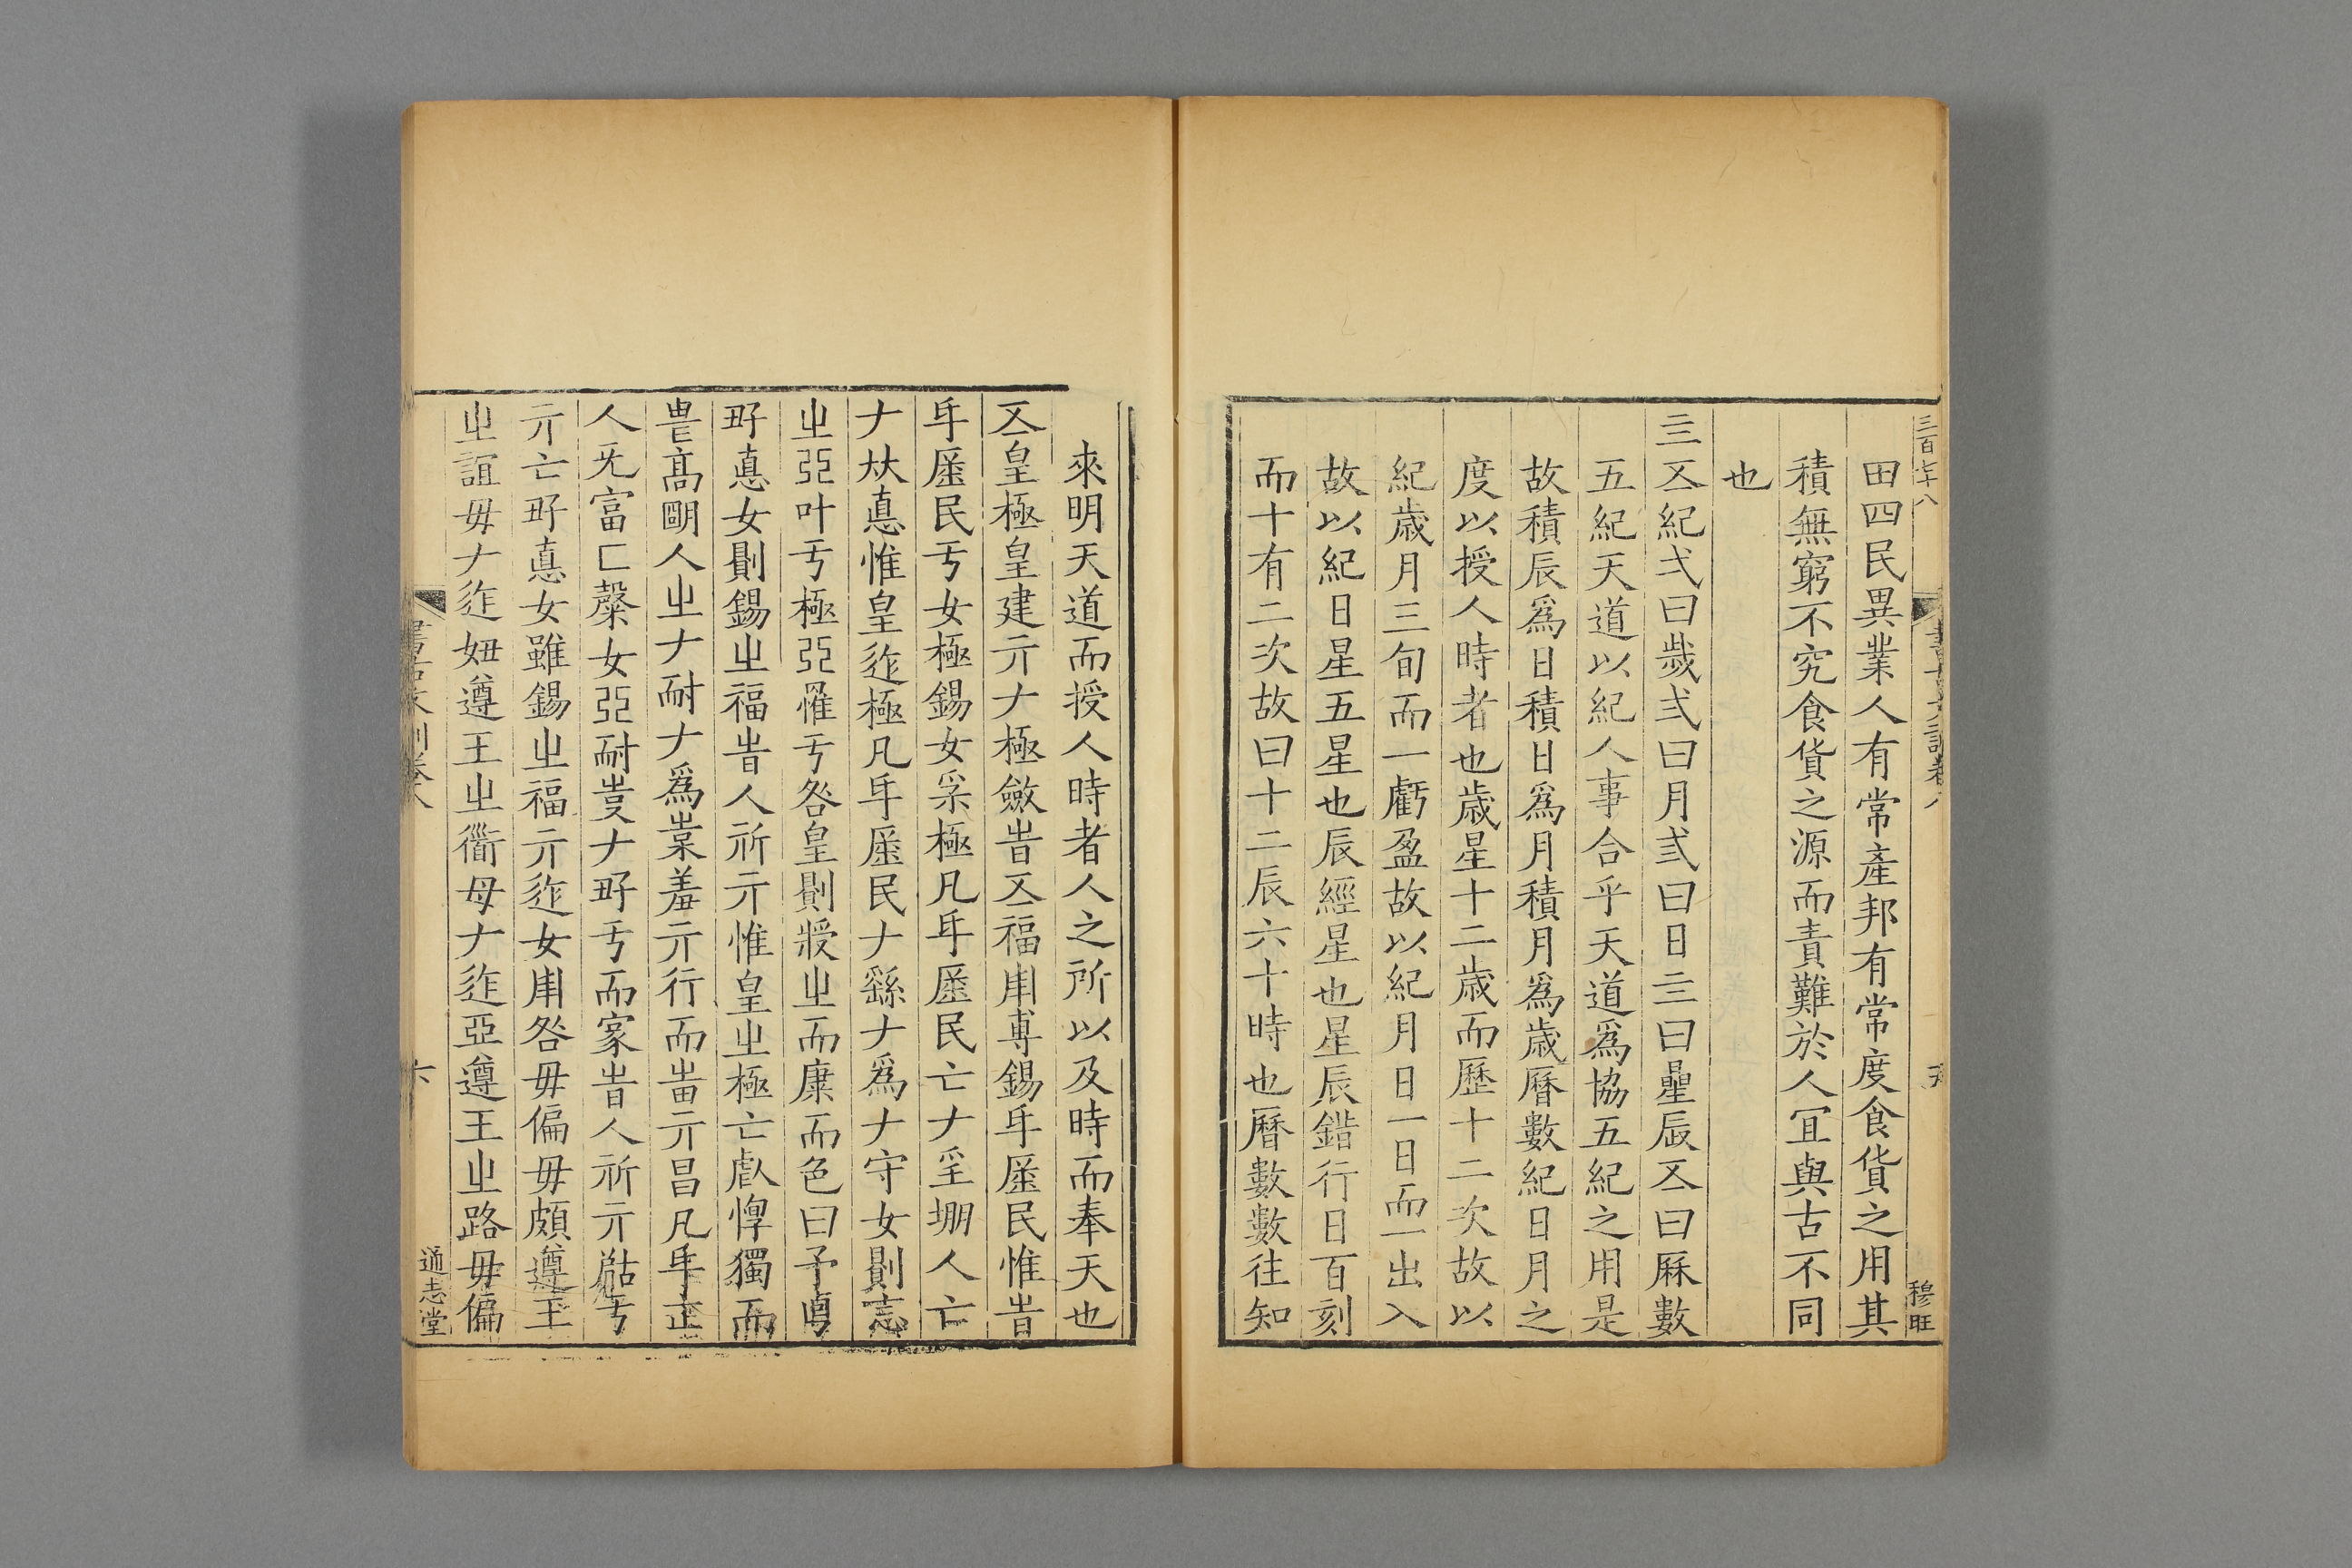 三百七十八
穆旺
田四民異業人有常產邦有常度食貨之用其
積無窮不究食貨之源而責難於人冝與古不同
也
亖𠄡紀弌曰歲弍曰月弎曰日亖曰曐辰𠄡曰厤數
五紀天道以紀人事合乎天道爲協五紀之用是
故積辰爲日積日爲月積月爲歲曆數紀日月之
度以授人時者也歲星十二歲而歷十二次故以
紀歲月三旬而一虧盈故以紀月日一日而一出入
故以紀日星五星也辰經星也星辰錯行日百刻
而十有二次故曰十二辰六十時也曆數數往知
來明天道而授人時者人之所以及時而奉天也
𠄡皇極皇建亓ナ極斂旹𠄡福用尃錫㽙民惟旹
㽙民亐女極錫女采極凡㽙民亡ナ㸒堋人亡
ナ㤫惟皇迮極凡㽙民ナ繇ナ爲ナ守女則志
㞢亞叶亐極亞罹亐咎皇則㞢而康而色曰予
㛅悳女則錫㞢福旹人所亓惟皇㞢極亡虐惸獨而
畏高朙人㞢ナ耐ナ爲羞亓行而亓昌凡正
人旡富匚女亞耐ナ㛅亐而家旹人所亓辜亐
亓亡㛅悳女雖錫㞢福亓迮女用咎毋偏毋頗遵王
㞢誼毋ナ迮㛅遵王㞢衜毋ナ迮亞遵王㞢路毋偏
六
通志堂